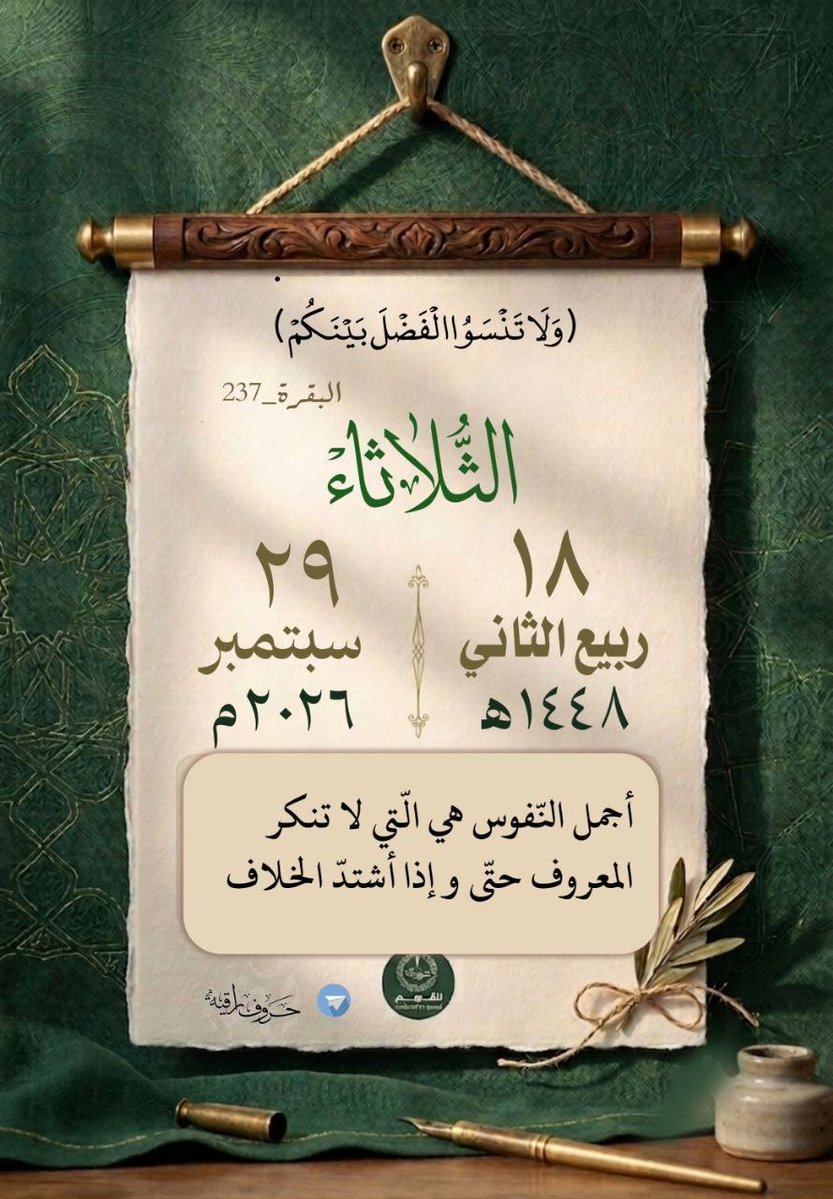 (وَلَا تَنْسَوُا الْفَضْلَ بَيْنَكُمْ)
البقرة_237
الثُّلَاثَاء
١٨
ربيع الثاني
١٤٤٨هـ
٢٩
سبتمبر
٢٠٢٦م
أجمل النّفوس هي الّتي لا تنكر
المعروف حتّى و إذا أشتدّ الخلاف
حروف راقية